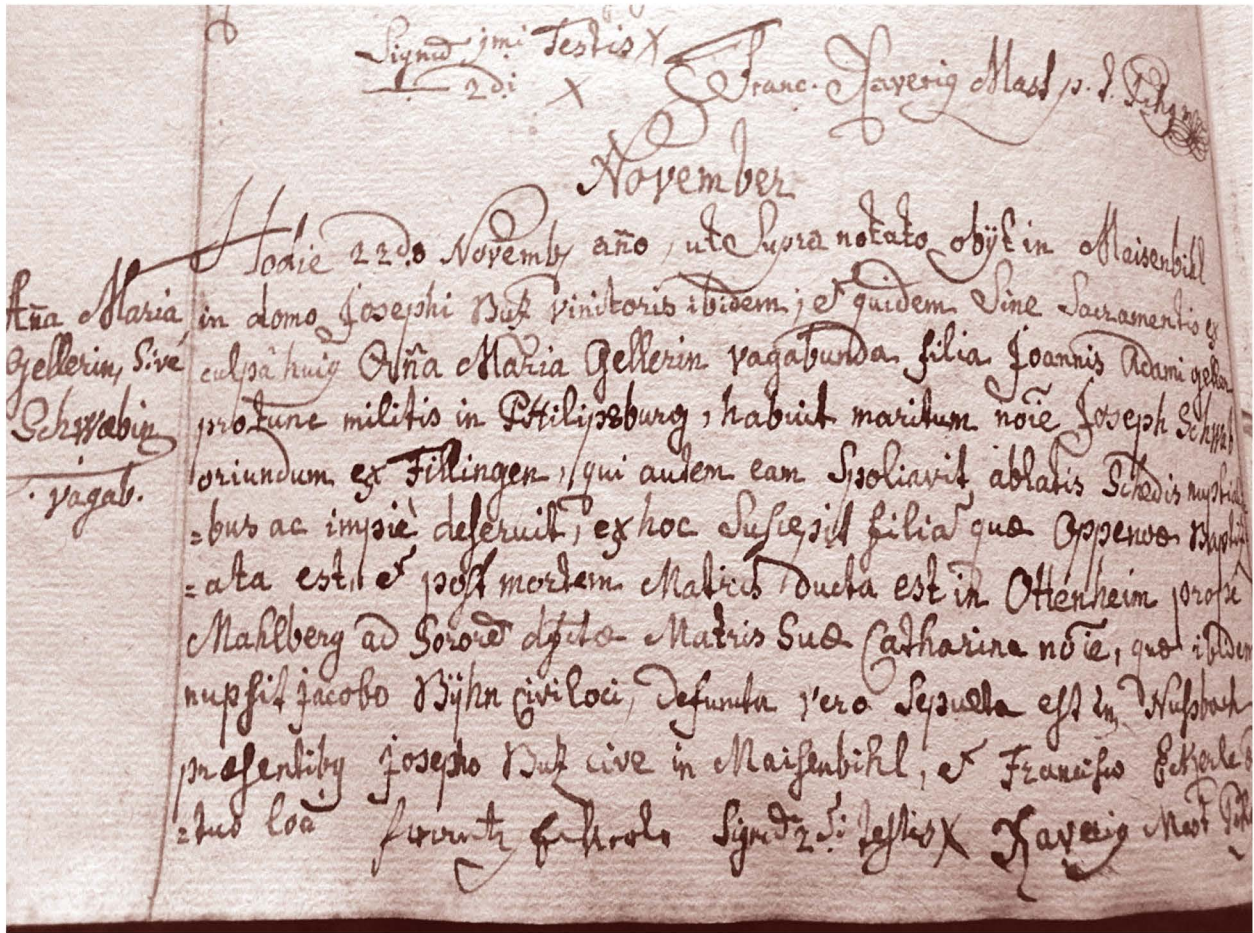 Signū 1mi Testis X
2di X Franc. Xaveriꝰ Mast p. t.
November
Hodie 22do Novemb, año, ut Supra notato obÿt in Maisenbihl
Aña Maria
in domo Josephi Butz vinitoris ibidem; et quidem Sine Sacramentis ex
Gellerin, Sive
culpâ huiꝰ Aña Maria Gellerin vagabunda filia Joannis Adami geller
Schwabin
protunc militis in PHilipsburg, habuit maritum nõie Joseph Schwab
vagab.
oriundum ex Fillingen, qui autem eam Spoliavit, ablatis Schedis nuptia
=bus ac impiè deseruit, ex hoc Suscepit filiā quæ Oppenoæ Baptiz
=ata est, et post mortem Matris ducta est in Ottenheim prope
Mahlberg ad Sororē dictæ Matris Suæ Catharina nõie, quæ ibidem
nupsit Jacobo Bÿhn Civi loci, defuncta vero Sepulta est in Nussbach
præsentibꝰ Josepho Butz cive in Maisenbihl, et Francisco Eckerle
=tuo loci Signū 2di testis X Xaveriꝰ Mast